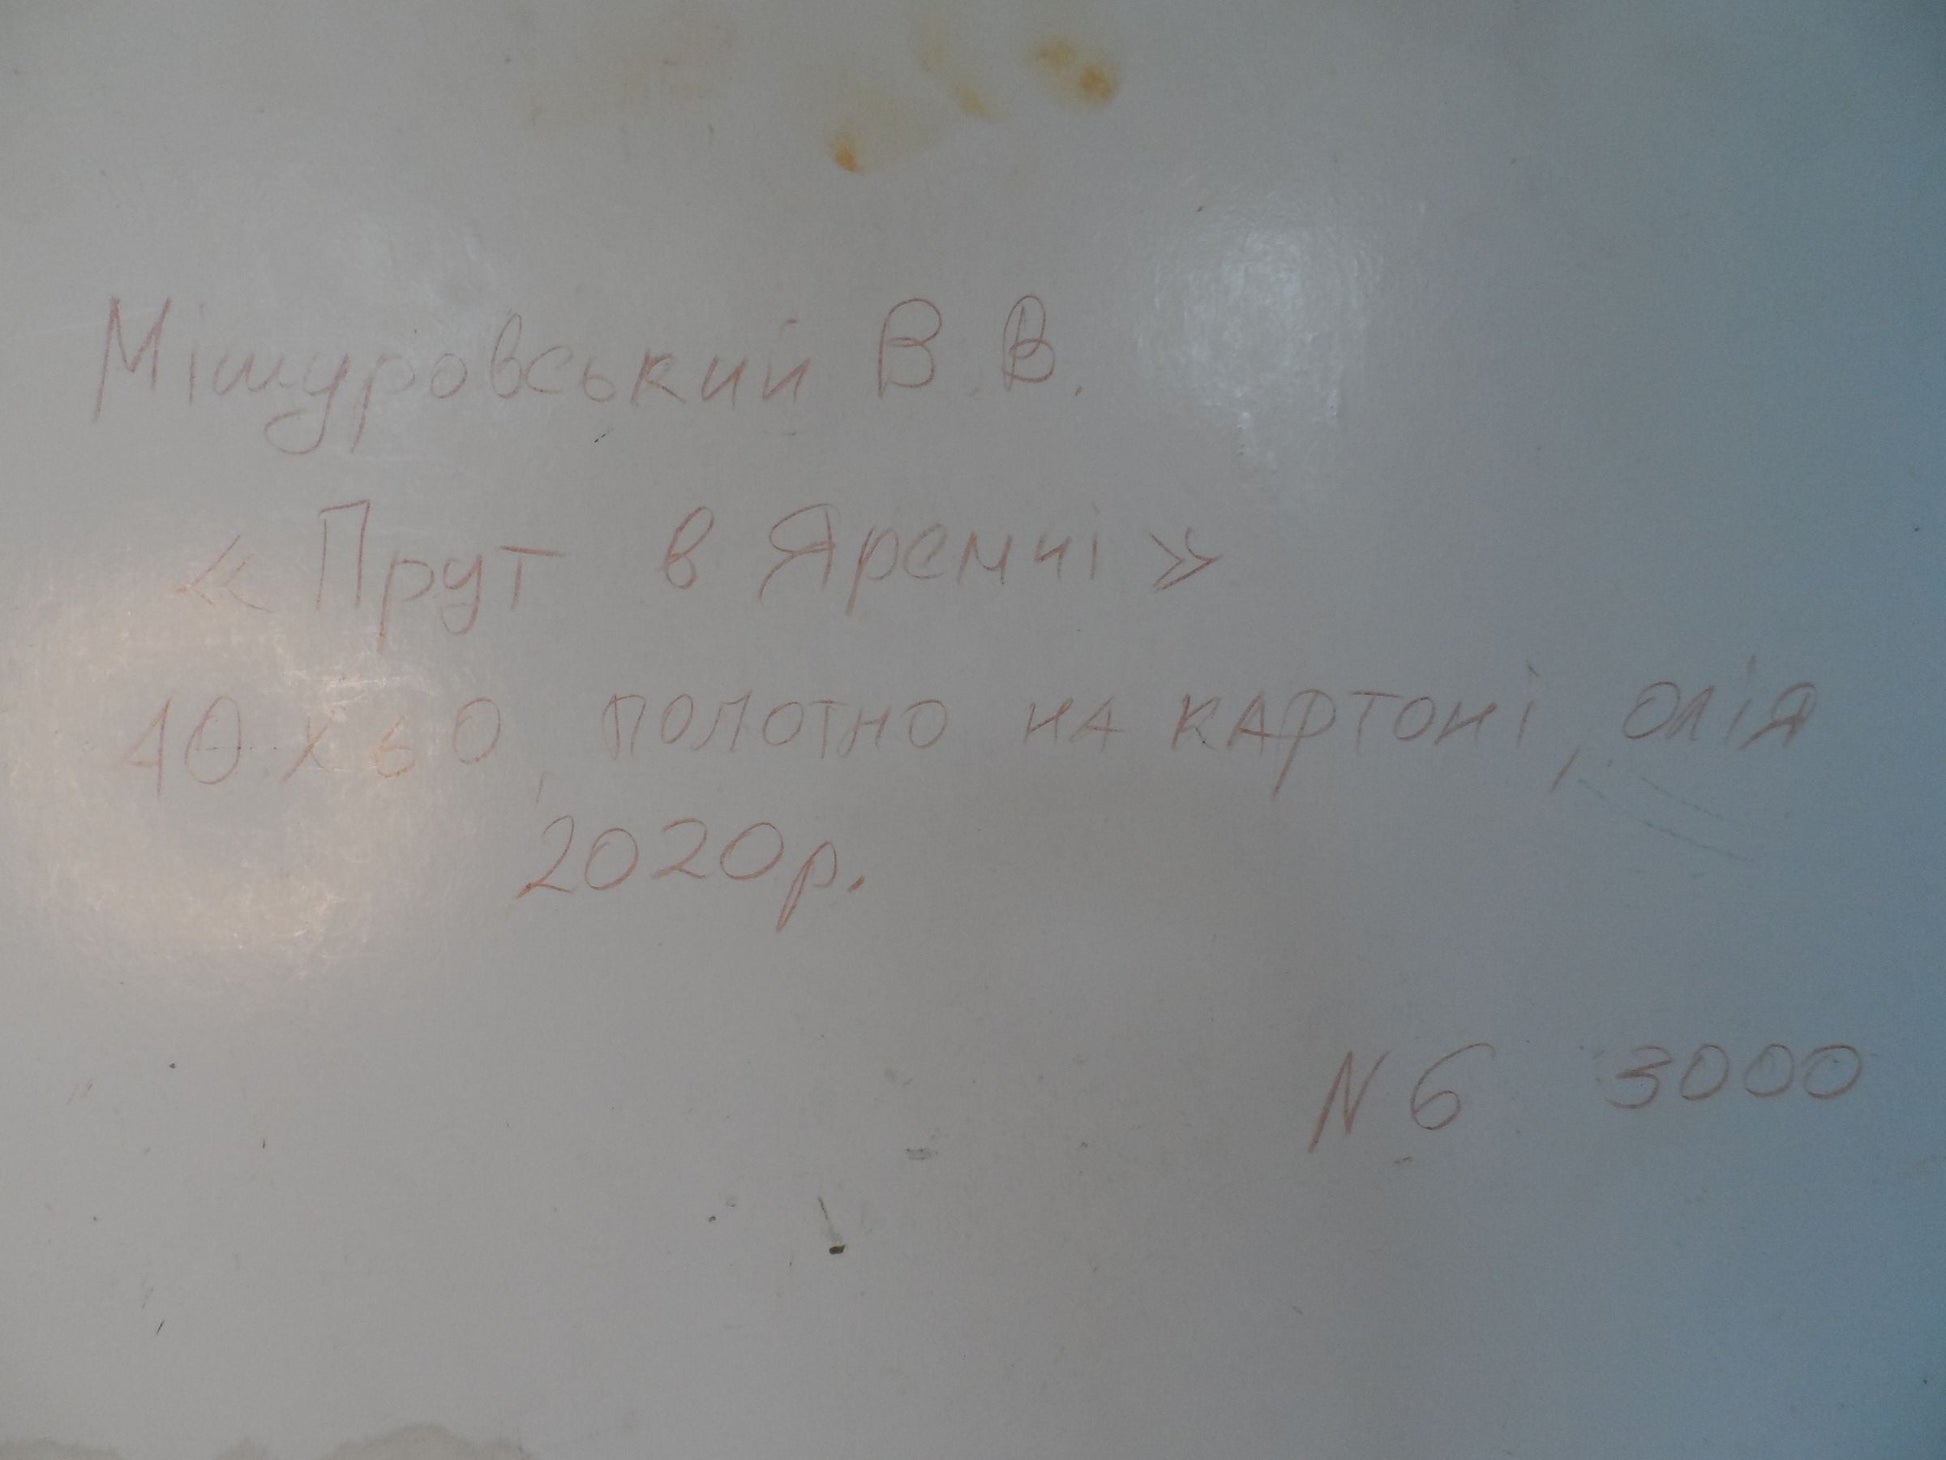 Мішуровський В.В.
« Прут в Яремчі »
40 х 60, полотно на картоні, олія
2020р.
N 6 3000